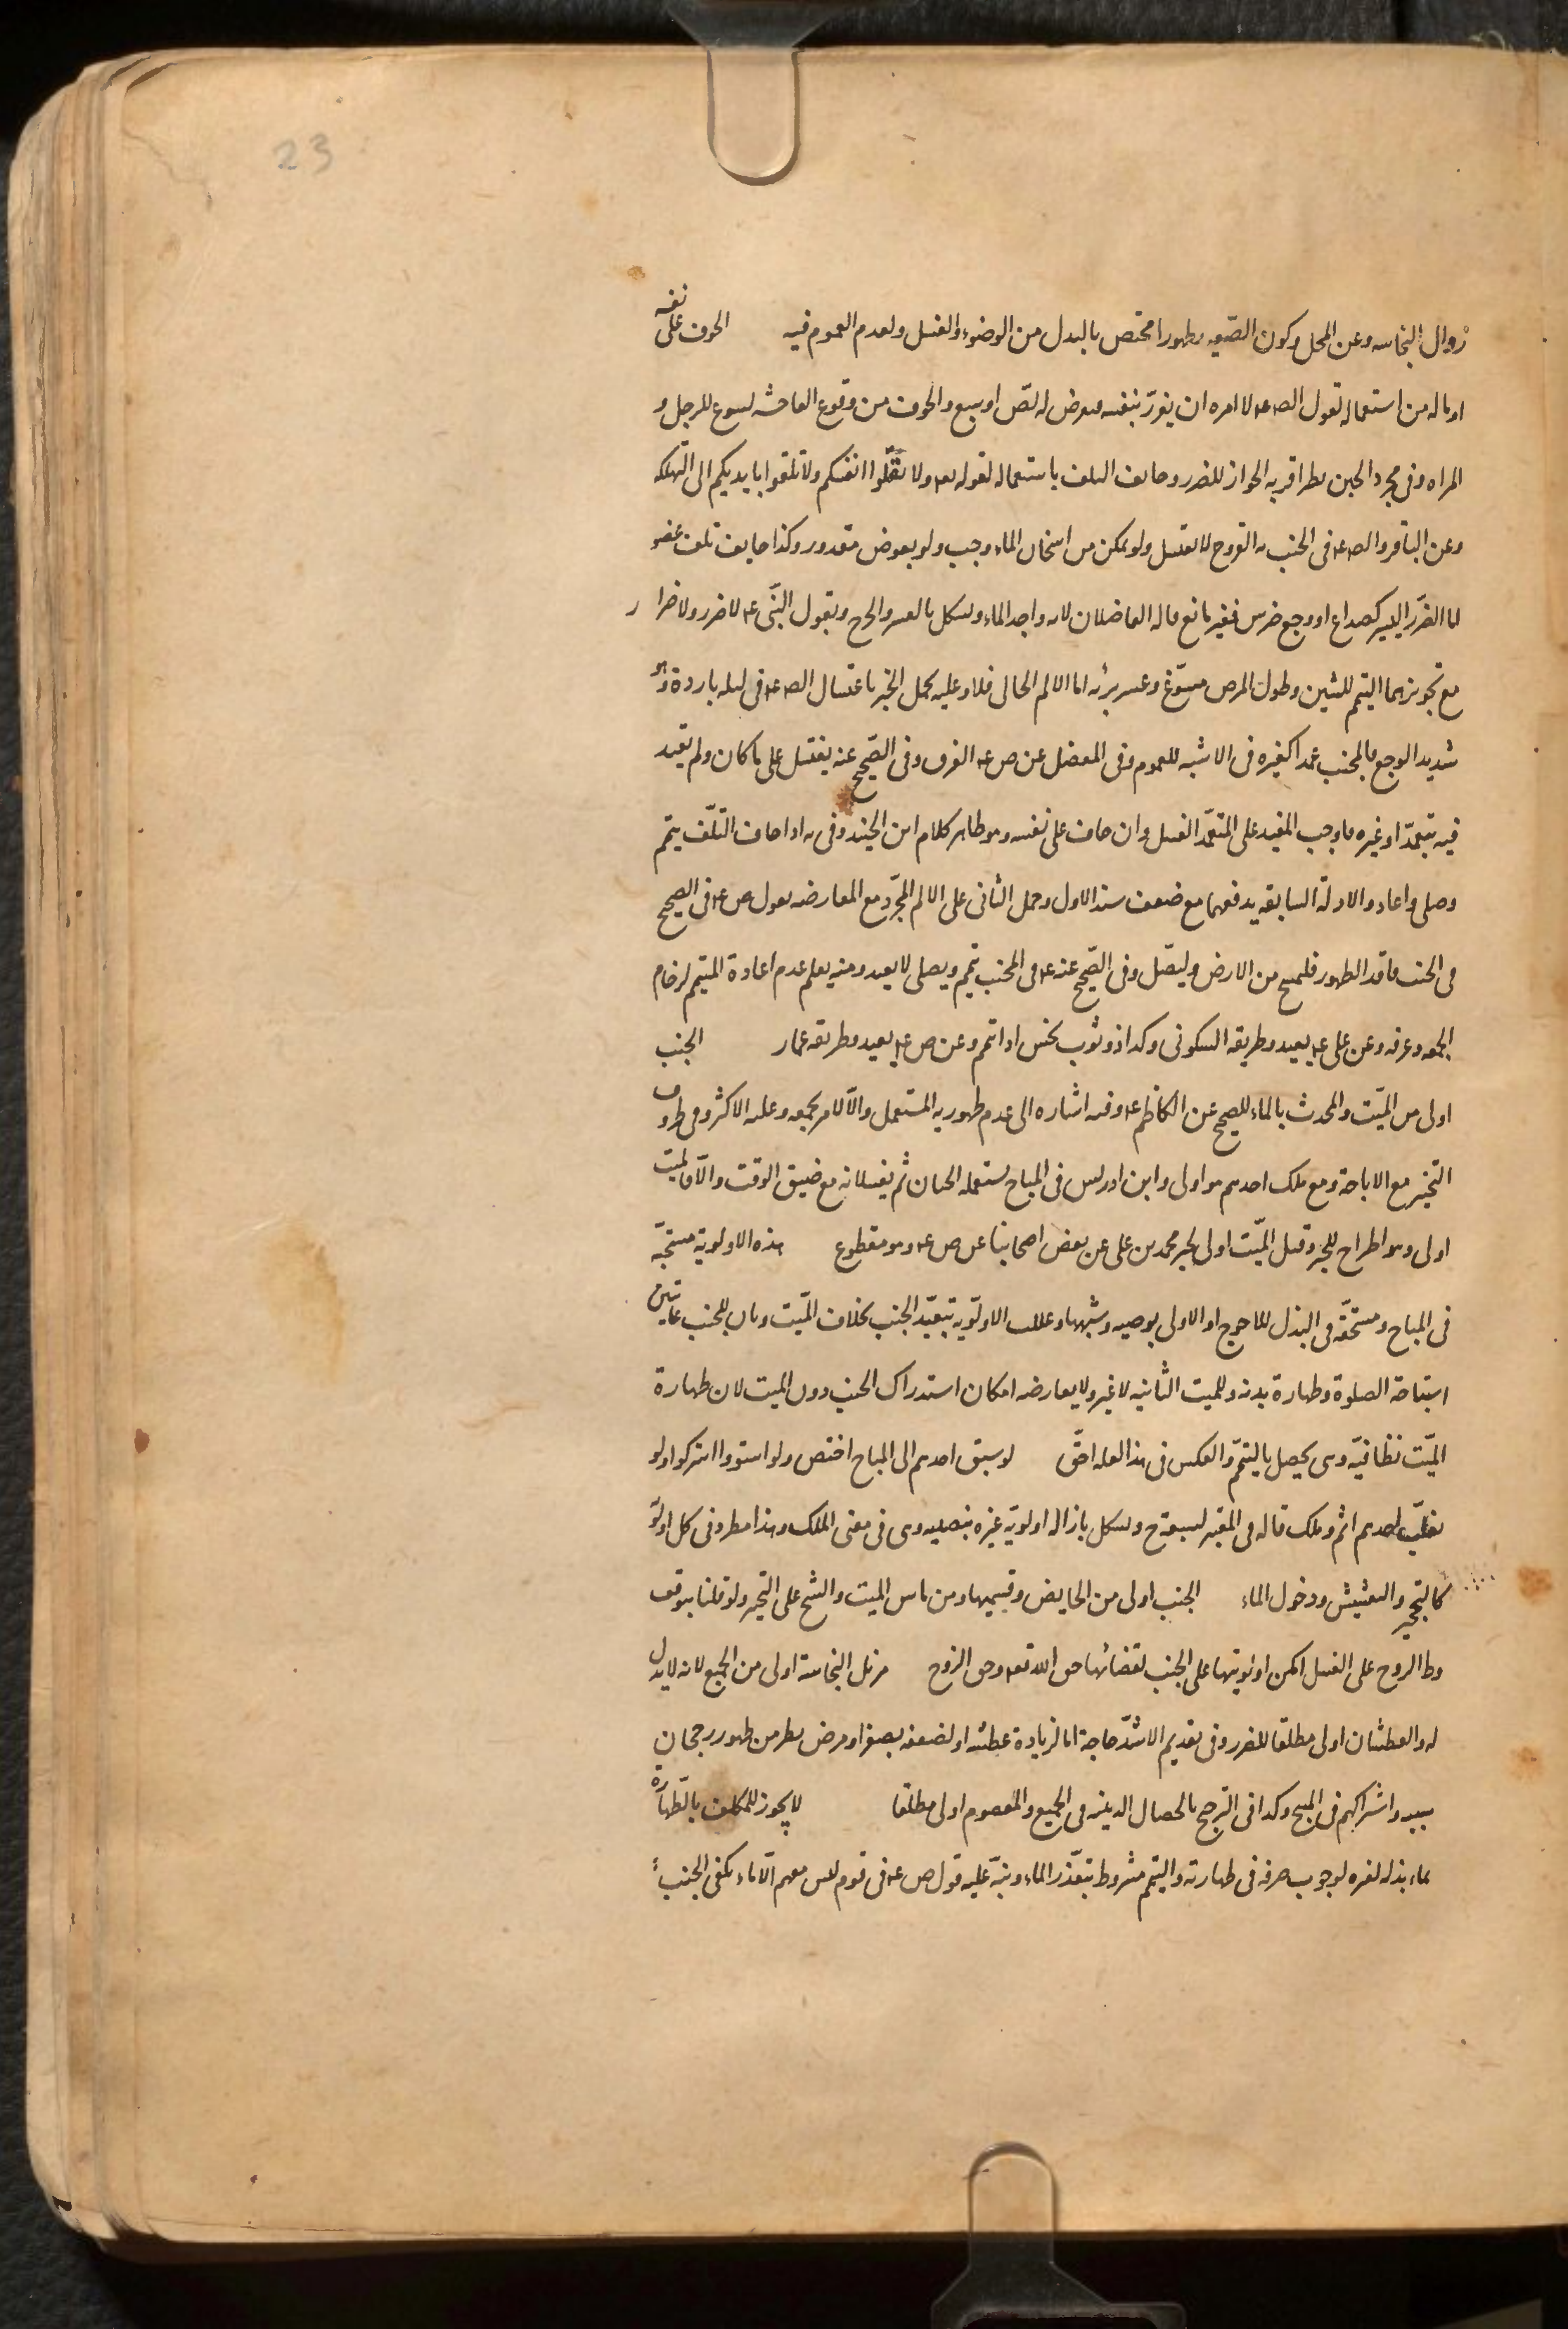 23
زوال النجاسه وعن المحل وكون الصعيد طهورا مختص بالبدل من الوضوء والغسل ولعدم العموم فيه الخوف على نفسه
او ماله من استعماله لقول الص ع لا امره ان يغرر بنفسه فيعرض له لص او سبع والخوف من وقوع الفاحشه يسوغ للرجل و
المراه وفى مجرد الجبن نظر اقربه الجواز للضرر وخايف التلف باستعماله لقوله تعه ولا تقتلوا انفسكم ولا تلقوا بايديكم الى التهلكه
وعن الباقر والص ع فى الجنب به القروح لا يغتسل ولو تمكن من اسخان الماء وجب ولو بعوض مقدور وكذا خايف تلف عضو
اما الضرر اليسير كصداع او وجع ضرس فغير مانع قاله الفاضلان لانه واجد الماء ويشكل بالعسر والحرج وبقول النبى ع لا ضرر ولا ضرار
مع تجويزهما التيمم للشين وطول المرض مسوغ وعسر برئه اما الالم الحالى فلا وعليه يحمل الخبر باغتسال الص ع فى ليله باردة وهو
شديد الوجع فالمجنب عمدا كغيره فى الاشبه للعموم وفى المفضل عن ص ع الفرق وفى الصحيح عنه يغتسل على ما كان ولم يقيد
فيه بتعمد او غيره فاوجب المفيد على المتعمد الغسل وان خاف على نفسه وهو ظاهر كلام ابن الجنيد وفى يه اذا خاف التلف يتمم
وصلى واعاد والادلة السابقه يدفعهما مع ضعف سند الاول وحمل الثانى على الالم المجرد مع المعارضه بقول ص ع فى الصحيح
فى الجنب فاقد الطهور فليمسح من الارض وليصل وفى الصحيح عنه ع فى المجنب تيمم ويصلى لا يعيد ومنه يعلم عدم اعادة المتيمم لزحام
الجمعه وعرفه وعن على ع يعيد وطريقه السكونى وكذا ذو ثوب نجس اذا تيمم وعن ص ع يعيد وطريقه عمار الجنب
اولى من الميت والمحدث بالماء للصحيح عن الكاظم ع وفيه اشاره الى عدم طهوريه المستعمل والا لامر بجمعه وعليه الاكثر وفى طروف
التخير مع الاباحة ومع ملك احدهم هو اولى وابن ادريس فى المباح يستعمله الحيان ثم يغسلانه مع ضيق الوقت والا فالميت
اولى وهو اطراح للخبر وقيل الميت اولى لخبر محمد بن على عن بعض اصحابنا عن ص ع وهو مقطوع هذه الاولوية مستحبة
فى المباح ومستحقه فى البذل للاحوج او الاولى بوصيه وشبهها وعللت الاولويه بتعبد الجنب بخلاف الميت وبان للجنب غايتين
استباحة الصلوة وطهارة بدنه وللميت الثانيه لا غير ولا يعارضه امكان استدراك الجنب دون الميت لان طهارة
الميت نظافية وهى يحصل بالتيمم والعكس فى هذا العله احق لو سبق احدهم الى المباح اختص ولو استووا اشتركوا ولو
تغلب احدهم اثم وملك قاله فى المعتبر لسبقه ح ويشكل بازاله اولوية غيره بنصيبه وهى فى معنى الملك وهذا مطرد فى كل اولوية
كالتحجير والتعشيش ودخول الماء الجنب اولى من الحايض وقسيميها ومن ماس الميت والشيخ على التخير ولو قلنا بتوقف
وطا الزوج على الغسل امكن اولويتها على الجنب لقضائها حق الله تعه وحق الزوج مزيل النجاسة اولى من الجميع لانه لا بدل
له والعطشان اولى مطلقا للضرر وفى تقديم الاشد حاجة اما لزيادة عطشه او لضعفه بصغر او مرض نظر من ظهور رجحان
سببه واشتراكهم فى المبيح وكذا فى الترجيح بالخصال الدينيه فى الجميع والمعصوم اولى مطلقا لا يجوز للمكلف بالطهارة
بماء بذله لغيره لوجوب صرفه فى طهارته والتيمم مشروط بتعذر الماء ونبه عليه قول ص ع فى قوم ليس معهم الا ماء يكفى الجنب